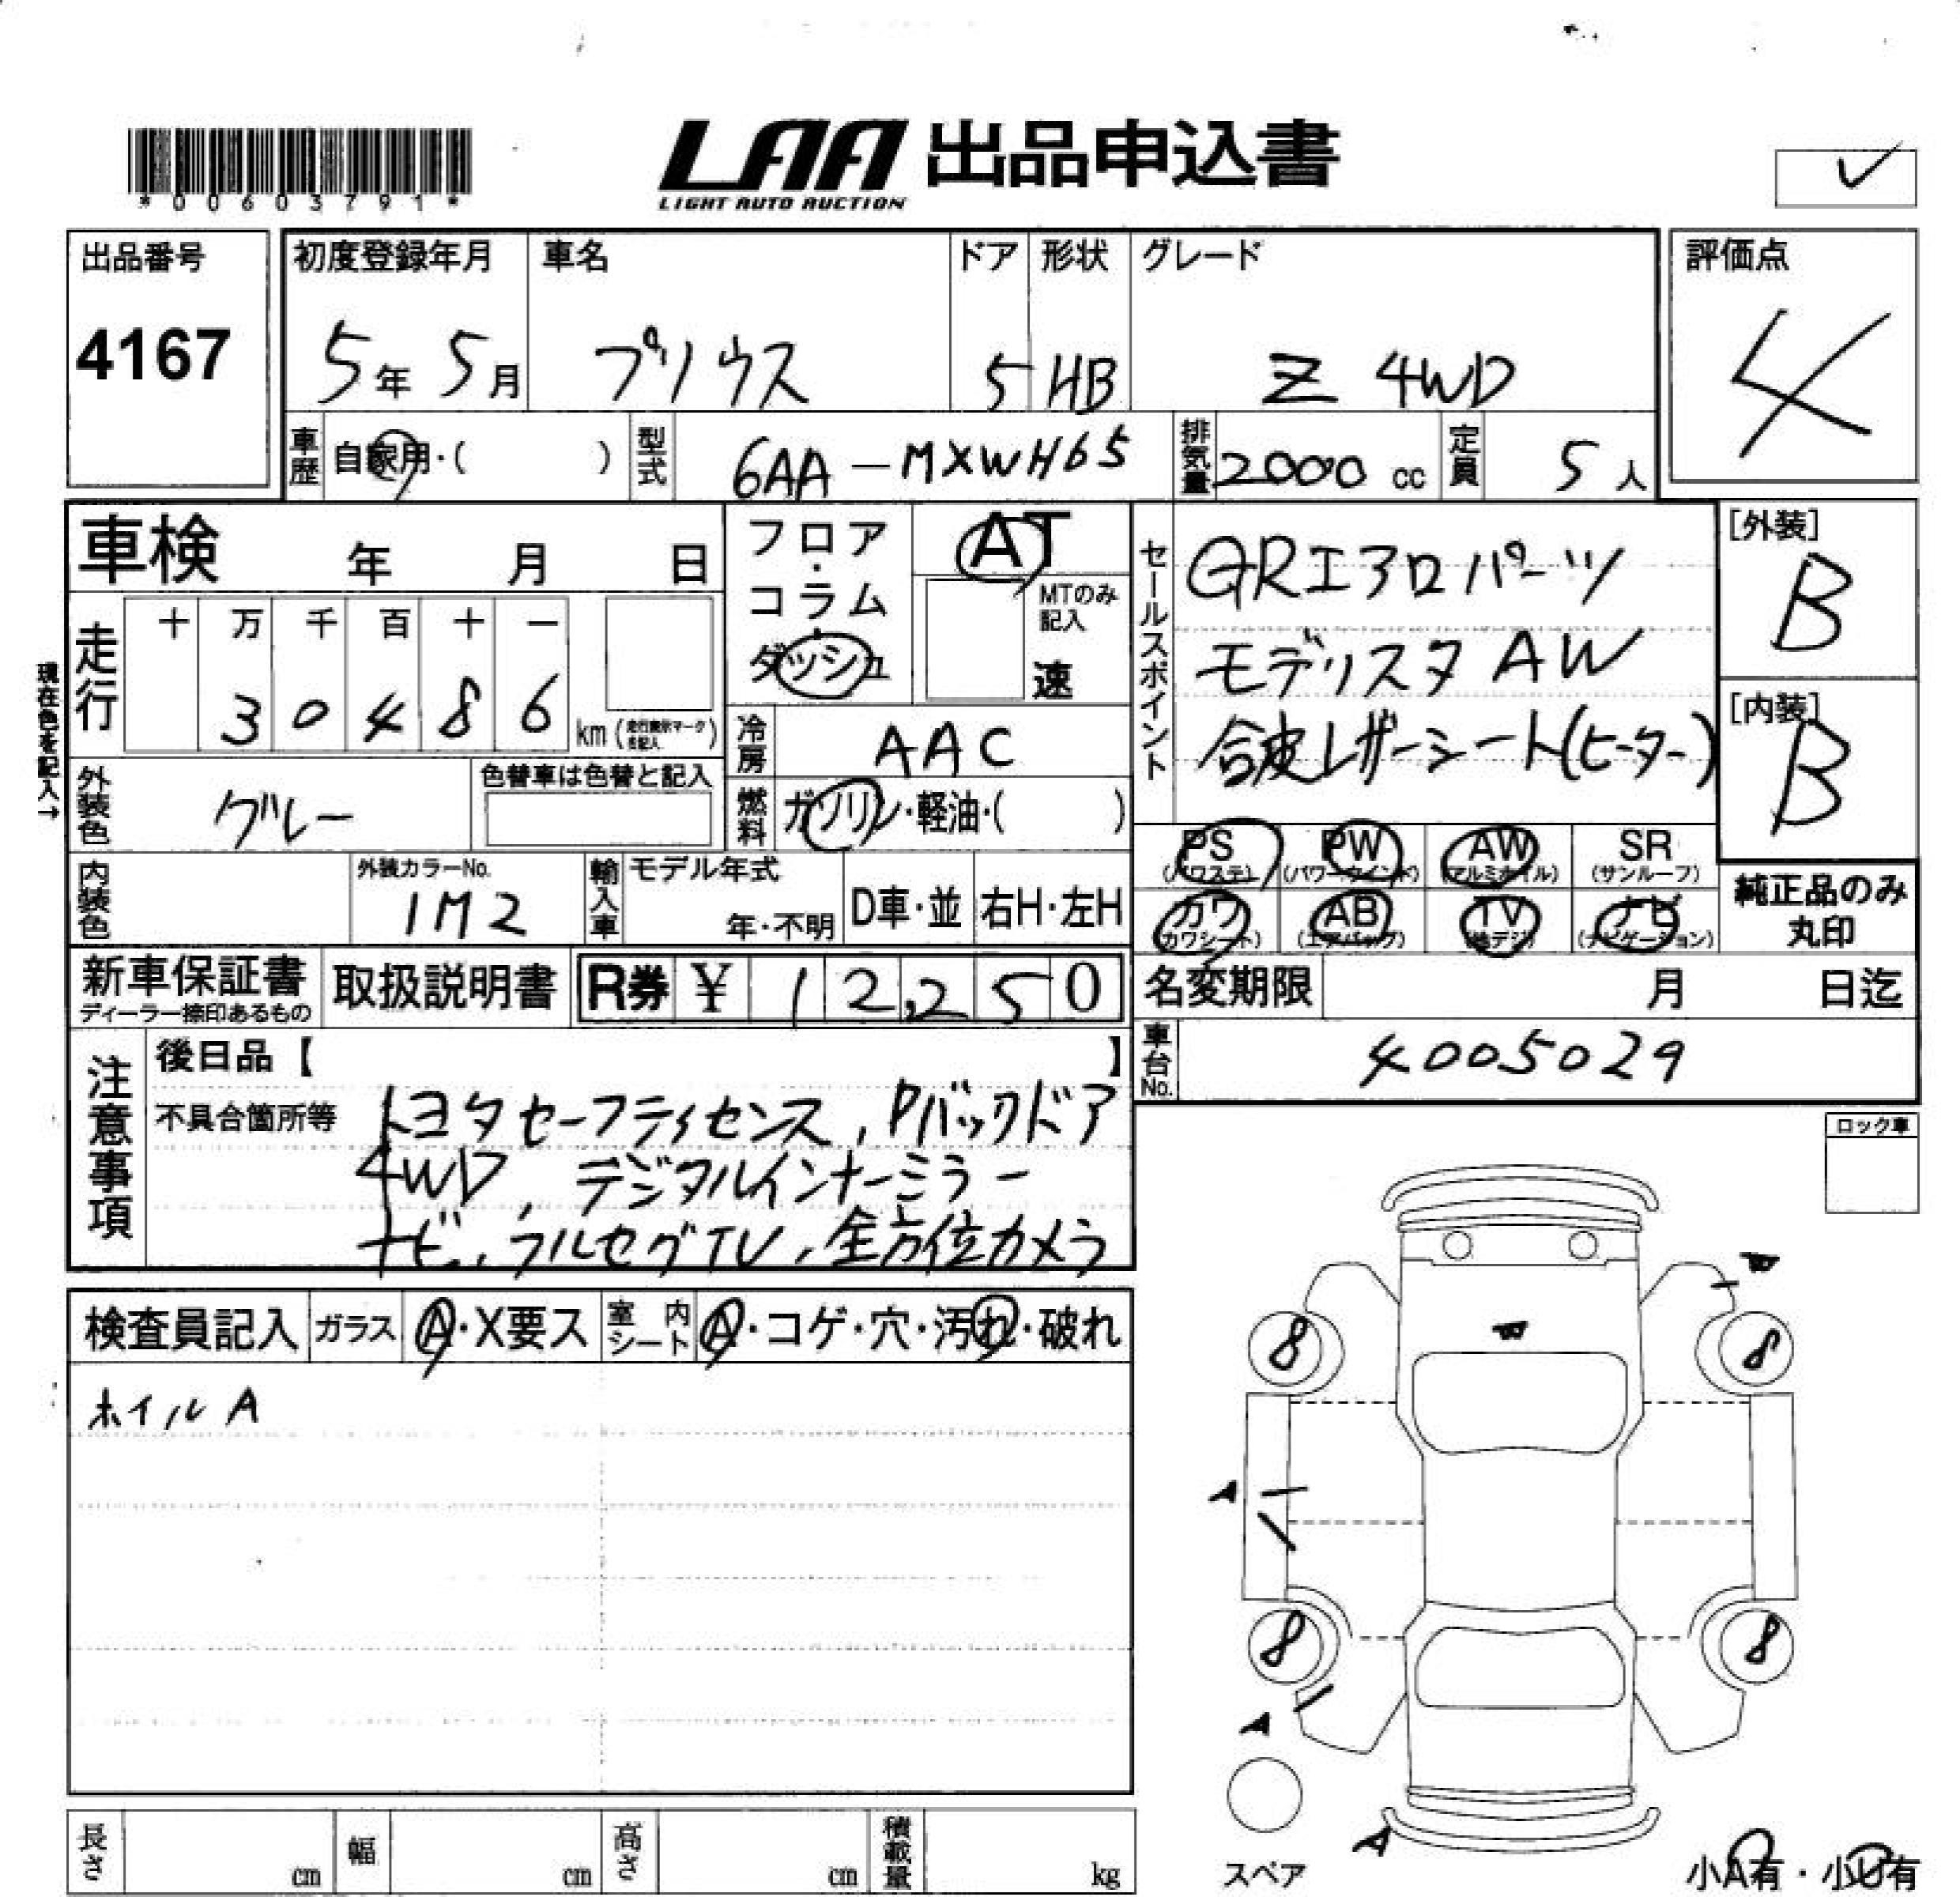 *00603791*
LAA 出品申込書
LIGHT AUTO AUCTION
✓
出品番号
4167
初度登録年月
5年 5月
車名
プリウス
ドア
5
形状
HB
グレード
Z 4WD
評価点
4
車歴
自家用・( )
型式
6AA-MXWH65
排気量
2000 cc
定員
5人
車検 年 月 日
フロア・コラム・ダッシュ
AT
MTのみ記入
速
セールスポイント
GRエアロパーツ
モデリスタ AW
合皮レザーシート(ヒーター)
[外装]
B
[内装]
B
現在色を記入→
走行
十 万 千 百 十 一
3 0 4 8 6
km
冷房
AAC
外装色
グレー
色替車は色替と記入
燃料
ガソリン・軽油・( )
内装色
外装カラーNo.
1M2
輸入車
モデル年式
年・不明
D車・並
右H・左H
PS
(パワステ)
PW
(パワーウインド)
AW
(アルミホイル)
SR
(サンルーフ)
カワ
(カワシート)
AB
(エアバッグ)
TV
(地デジ)
ナビ
(ナビゲーション)
純正品のみ
丸印
新車保証書
ディーラー捺印あるもの
取扱説明書
R券 ¥ 12,250
名変期限 月 日迄
車台No.
4005029
注意事項
後日品【 】
不具合箇所等
トヨタセーフティセンス, Pバックドア
4WD, デジタルインナーミラー
ナビ, フルセグTV, 全方位カメラ
ロック車
検査員記入
ガラス
A・X要ス
室内シート
A・コゲ・穴・汚れ・破れ
ホイル A
W
W
8
8
A
8
8
A
A
スペア
長さ cm
幅 cm
高さ cm
積載量 kg
小A有・小U有